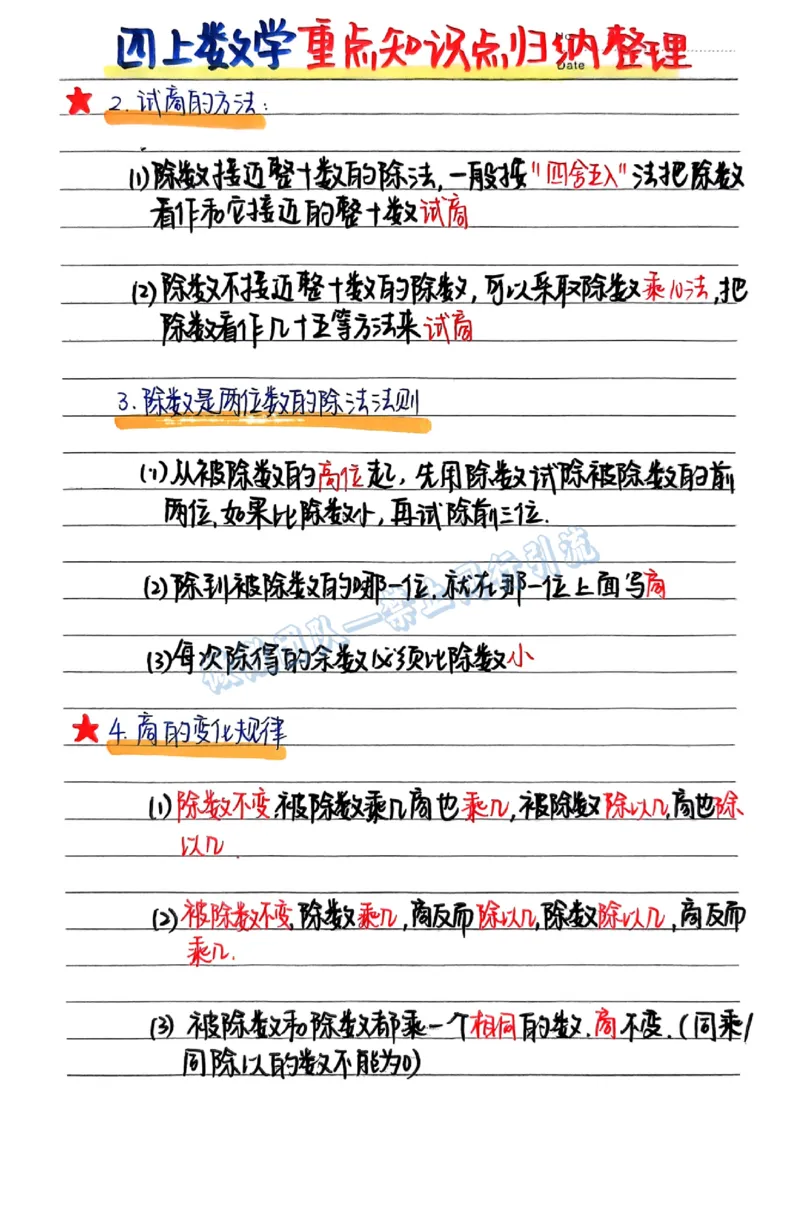 四上数学重点知识点归纳整理
No
Date
2.试商的方法:
(1)除数接近整十数的除法,一般按"四舍五入"法把除数
看作和它接近的整十数试商
(2)除数不接近整十数的除数,可以采取除数乘10法,把
除数看作几十五等方法来试商
3.除数是两位数的除法法则
(1)从被除数的高位起,先用除数试除被除数的前
两位,如果比除数小,再试除前三位.
(2)除到被除数的哪一位,就在那一位上面写商
(3)每次除得的余数必须比除数小
4.商的变化规律
(1)除数不变,被除数乘几商也乘几,被除数除以几,商也除
以几
(2)被除数不变,除数乘几,商反而除以几,除数除以几,商反而
乘几.
(3)被除数和除数都乘一个相同的数.商不变.(同乘/
同除以的数不能为0)